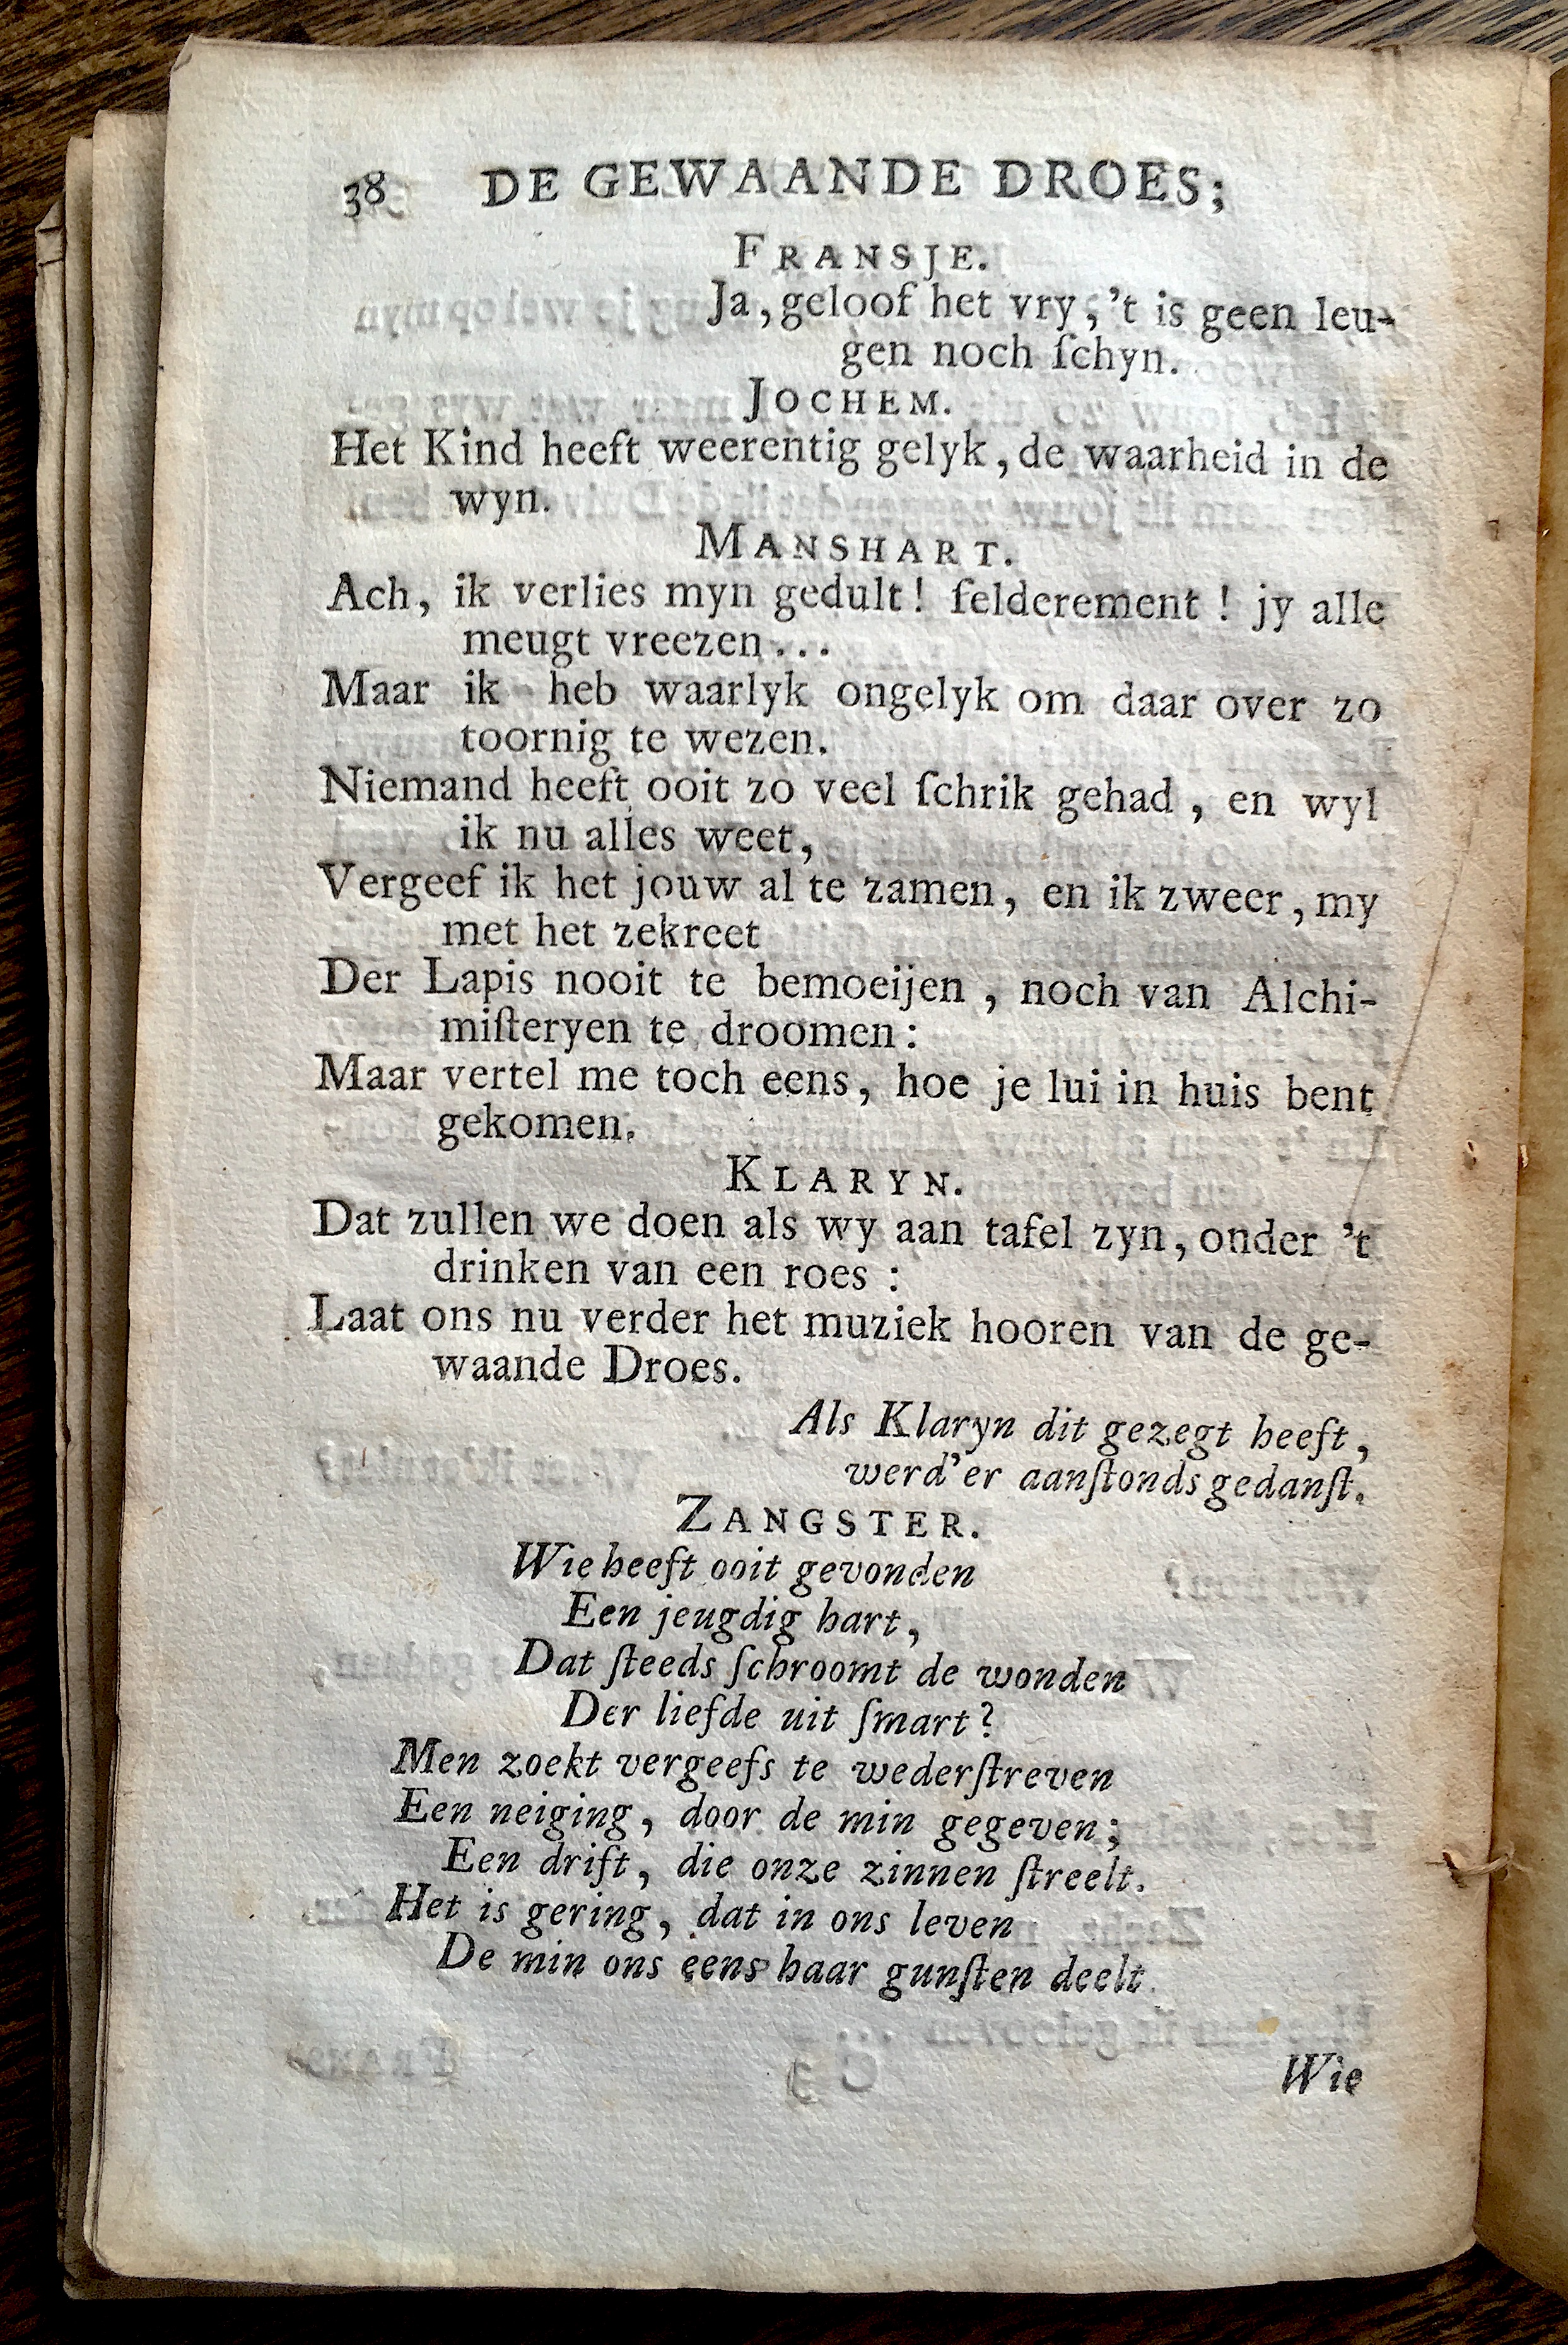 38 DE GEWAANDE DROES;
FRANSJE.
Ja, geloof het vry; 't is geen leu-
gen noch ſchyn.
JOCHEM.
Het Kind heeft weerentig gelyk, de waarheid in de
wyn.
MANSHART.
Ach, ik verlies myn gedult! ſelderement! jy alle
meugt vreezen...
Maar ik heb waarlyk ongelyk om daar over zo
toornig te wezen.
Niemand heeft ooit zo veel ſchrik gehad, en wyl
ik nu alles weet,
Vergeef ik het jouw al te zamen, en ik zweer, my
met het zekreet
Der Lapis nooit te bemoeijen, noch van Alchi-
miſteryen te droomen:
Maar vertel me toch eens, hoe je lui in huis bent
gekomen.
KLARYN.
Dat zullen we doen als wy aan tafel zyn, onder 't
drinken van een roes:
Laat ons nu verder het muziek hooren van de ge-
waande Droes.
Als Klaryn dit gezegt heeft,
werd'er aanſtonds gedanſt.
ZANGSTER.
Wie heeft ooit gevonden
Een jeugdig hart,
Dat ſteeds ſchroomt de wonden
Der liefde uit ſmart?
Men zoekt vergeefs te wederſtreven
Een neiging, door de min gegeven;
Een drift, die onze zinnen ſtreelt.
Het is gering, dat in ons leven
De min ons eens haar gunſten deelt.
Wie